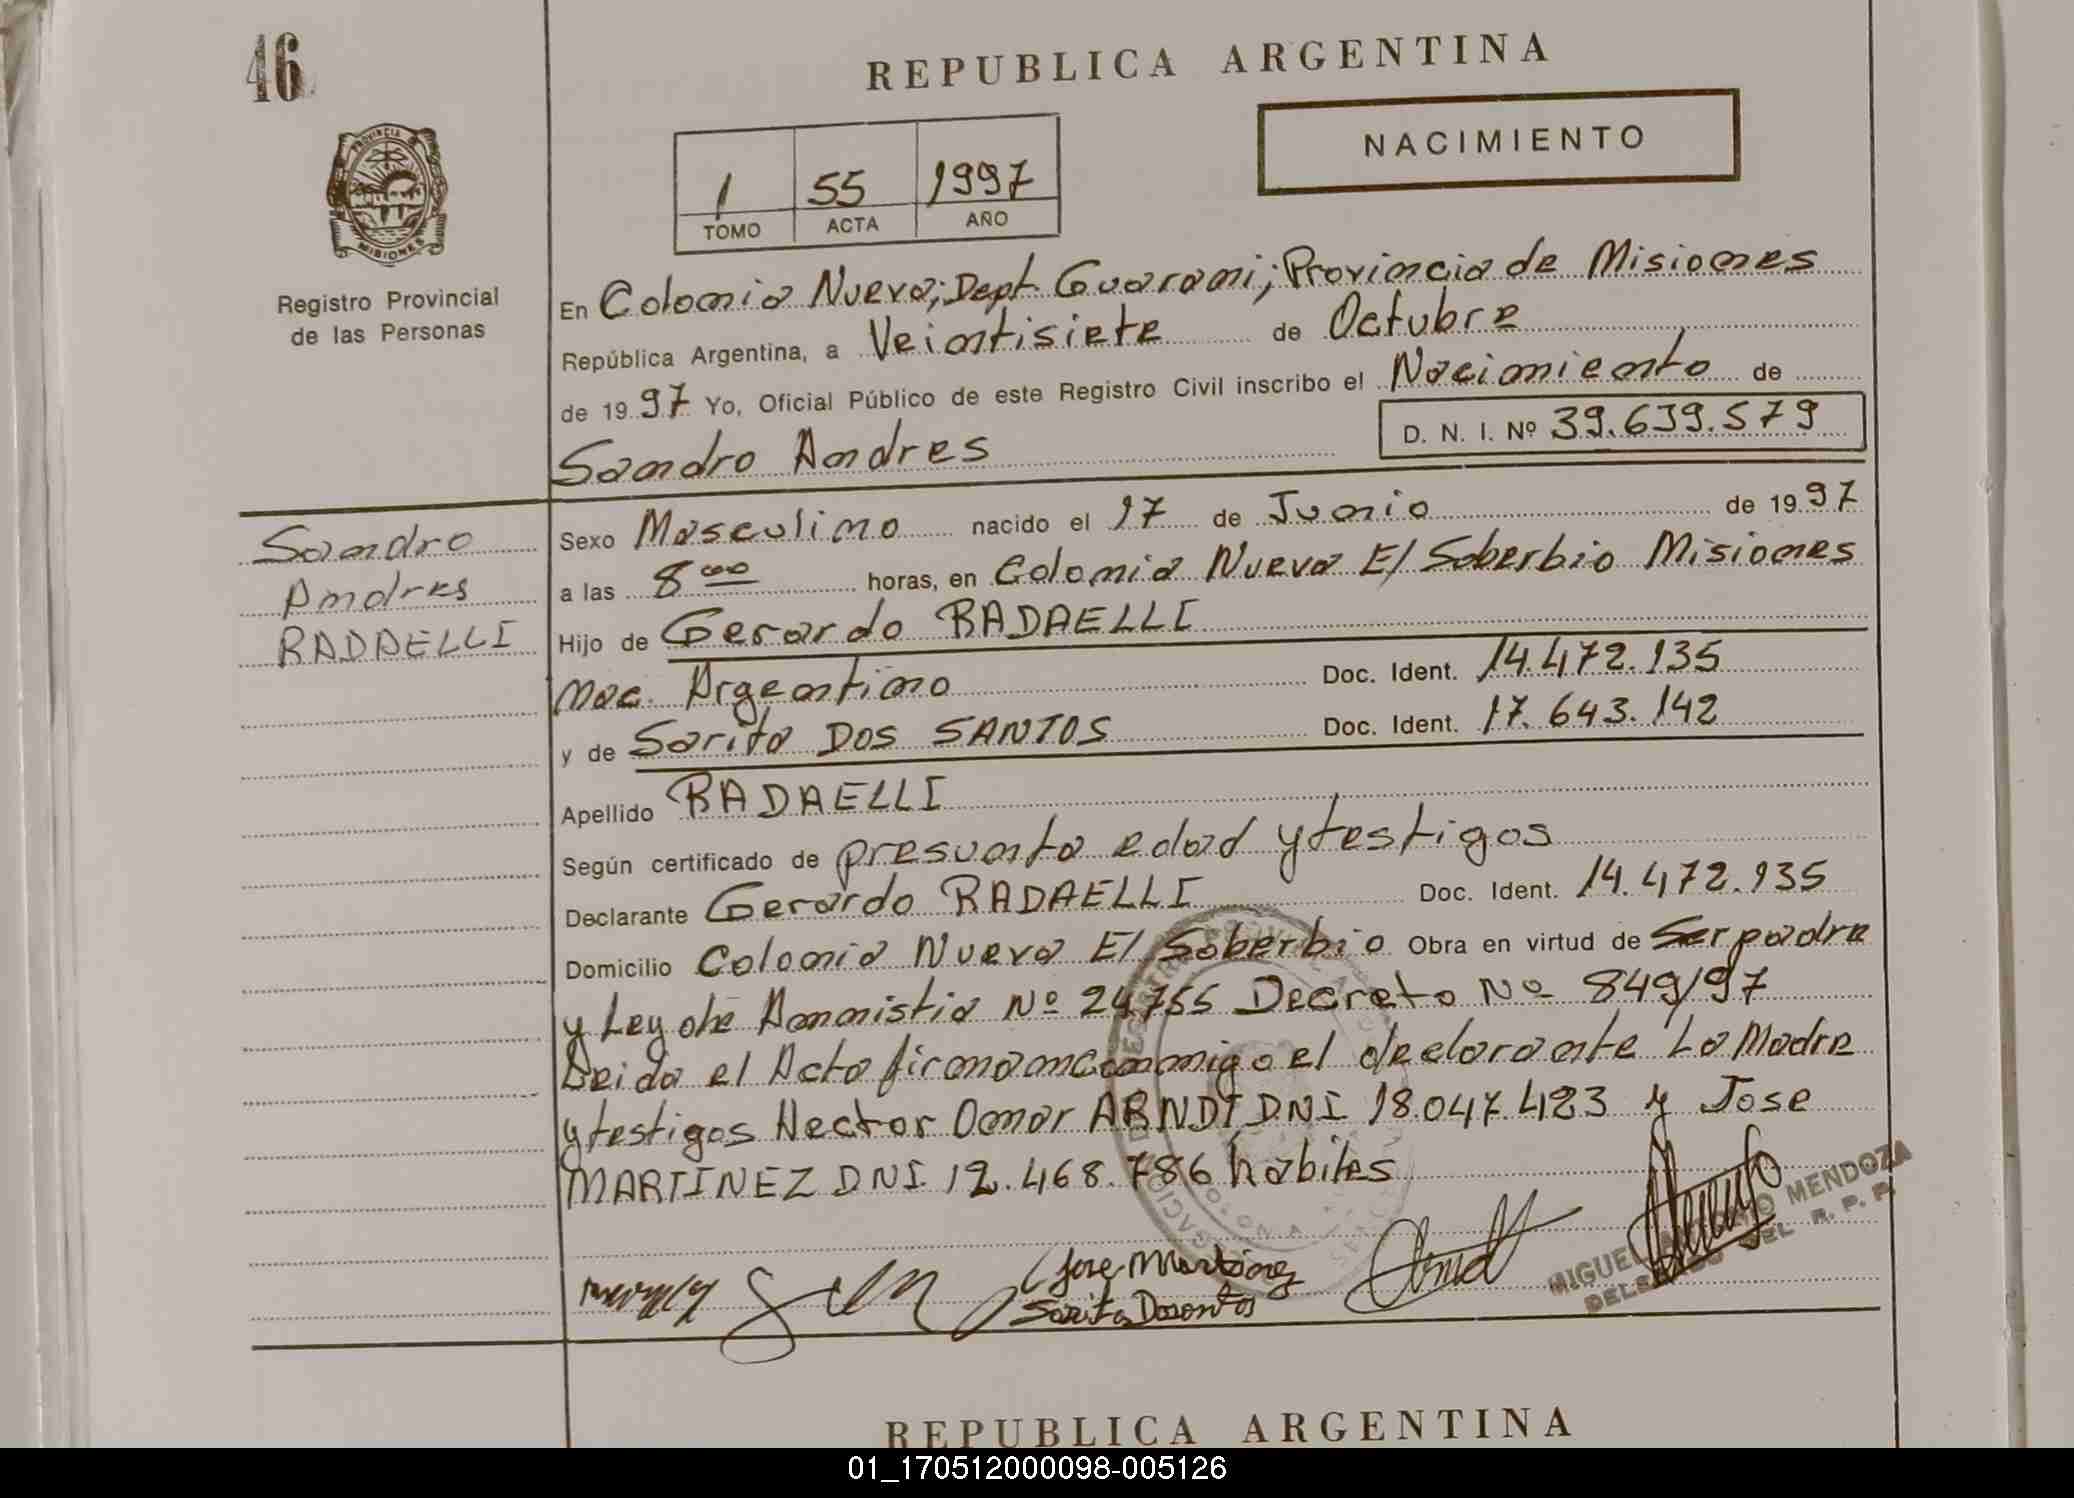 46
REPUBLICA ARGENTINA
NACIMIENTO
PROVINCIA
MISIONES
Registro Provincial
de las Personas
1 55 1997
TOMO ACTA AÑO
En Colonia Nueva; Dept. Guarani; Provincia de Misiones
República Argentina, a Veintisiete de Octubre
de 1997 Yo, Oficial Público de este Registro Civil inscribo el Nacimiento de
D. N. I. Nº 39.639.579
Sandro Andres
Sandro
Andres
RADAELLI
Sexo Masculino nacido el 17 de Junio de 1997
a las 8 00 horas, en Colonia Nueva El Soberbio Misiones
Hijo de Gerardo RADAELLI
Nac. Argentino Doc. Ident. 14.472.135
y de Sarita DOS SANTOS Doc. Ident. 17.643.142
Apellido RADAELLI
Según certificado de presunta edad y testigos
Declarante Gerardo RADAELLI Doc. Ident. 14.472.135
Domicilio Colonia Nueva El Soberbio Obra en virtud de Ser padre
y Ley de Amnistia Nº 24755 Decreto Nº 849/97
Leida el Acta firman conmigo el declarante La Madre
y testigos Hector Omar ARNDT DNI 18.047.423 y Jose
MARTINEZ DNI. 12.468.786 habiles
Jose Martinez
Sarita Dosontos
MIGUEL ANTONIO MENDOZA
DEL R. P. P.
REPUBLICA ARGENTINA
01_170512000098-005126